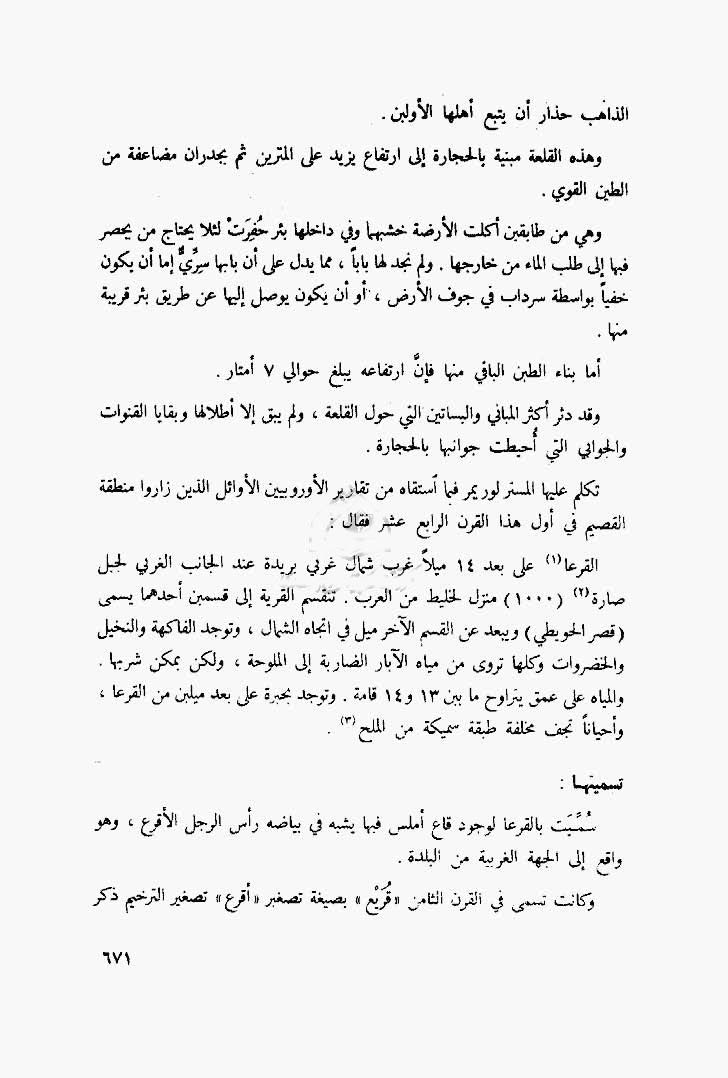 الذاهب حذار أن يتبع أهلها الأولين .
وهذه القلعة مبنية بالحجارة إلى ارتفاع يزيد على المترين ثم بجدران مضاعفة من
الطين القوي .
وهي من طابقين أكلت الأرضة خشبهما وفي داخلها بئر حُفِرَتْ لئلا يحتاج من يحصر
فيها إلى طلب الماء من خارجها . ولم نجد لها باباً ، مما يدل على أن بابها سِرِّيٌّ إما أن يكون
خفياً بواسطة سرداب في جوف الأرض ، أو أن يكون يوصل إليها عن طريق بئر قريبة
منها .
أما بناء الطين الباقي منها فإنَّ ارتفاعه يبلغ حوالي ٧ أمتار .
وقد دثر أكثر المباني والبساتين التي حول القلعة ، ولم يبق إلا أطلالها وبقايا القنوات
والجوابي التي أُحيطت جوانبها بالحجارة .
تكلم عليها المستر لوريمر فيما آستقاه من تقارير الأوروبيين الأوائل الذين زاروا منطقة
القصيم في أول هذا القرن الرابع عشر فقال :
القرعا(١) على بعد ١٤ ميلاً غرب شمال غربي بريدة عند الجانب الغربي لجبل
صارة(٢) (١٠٠٠) منزل لخليط من العرب . تنقسم القرية إلى قسمين أحدهما يسمى
(قصر الحويطي) ويبعد عن القسم الآخر ميل في اتجاه الشمال ، وتوجد الفاكهة والنخيل
والخضروات وكلها تروى من مياه الآبار الضاربة إلى الملوحة ، ولكن يمكن شربها .
والمياه على عمق يتراوح ما بين ١٣ و١٤ قامة . وتوجد بحيرة على بعد ميلين من القرعا ،
وأحياناً تجف مخلفة طبقة سميكة من الملح(٣) .
تسميتها :
سُمِّيَت بالقرعا لوجود قاع أملس فيها يشبه في بياضه رأس الرجل الأقرع ، وهو
واقع إلى الجهة الغربية من البلدة .
وكانت تسمى في القرن الثامن «قُرَيْع» بصيغة تصغير «أقرع» تصغير الترخيم ذكر
٦٧١